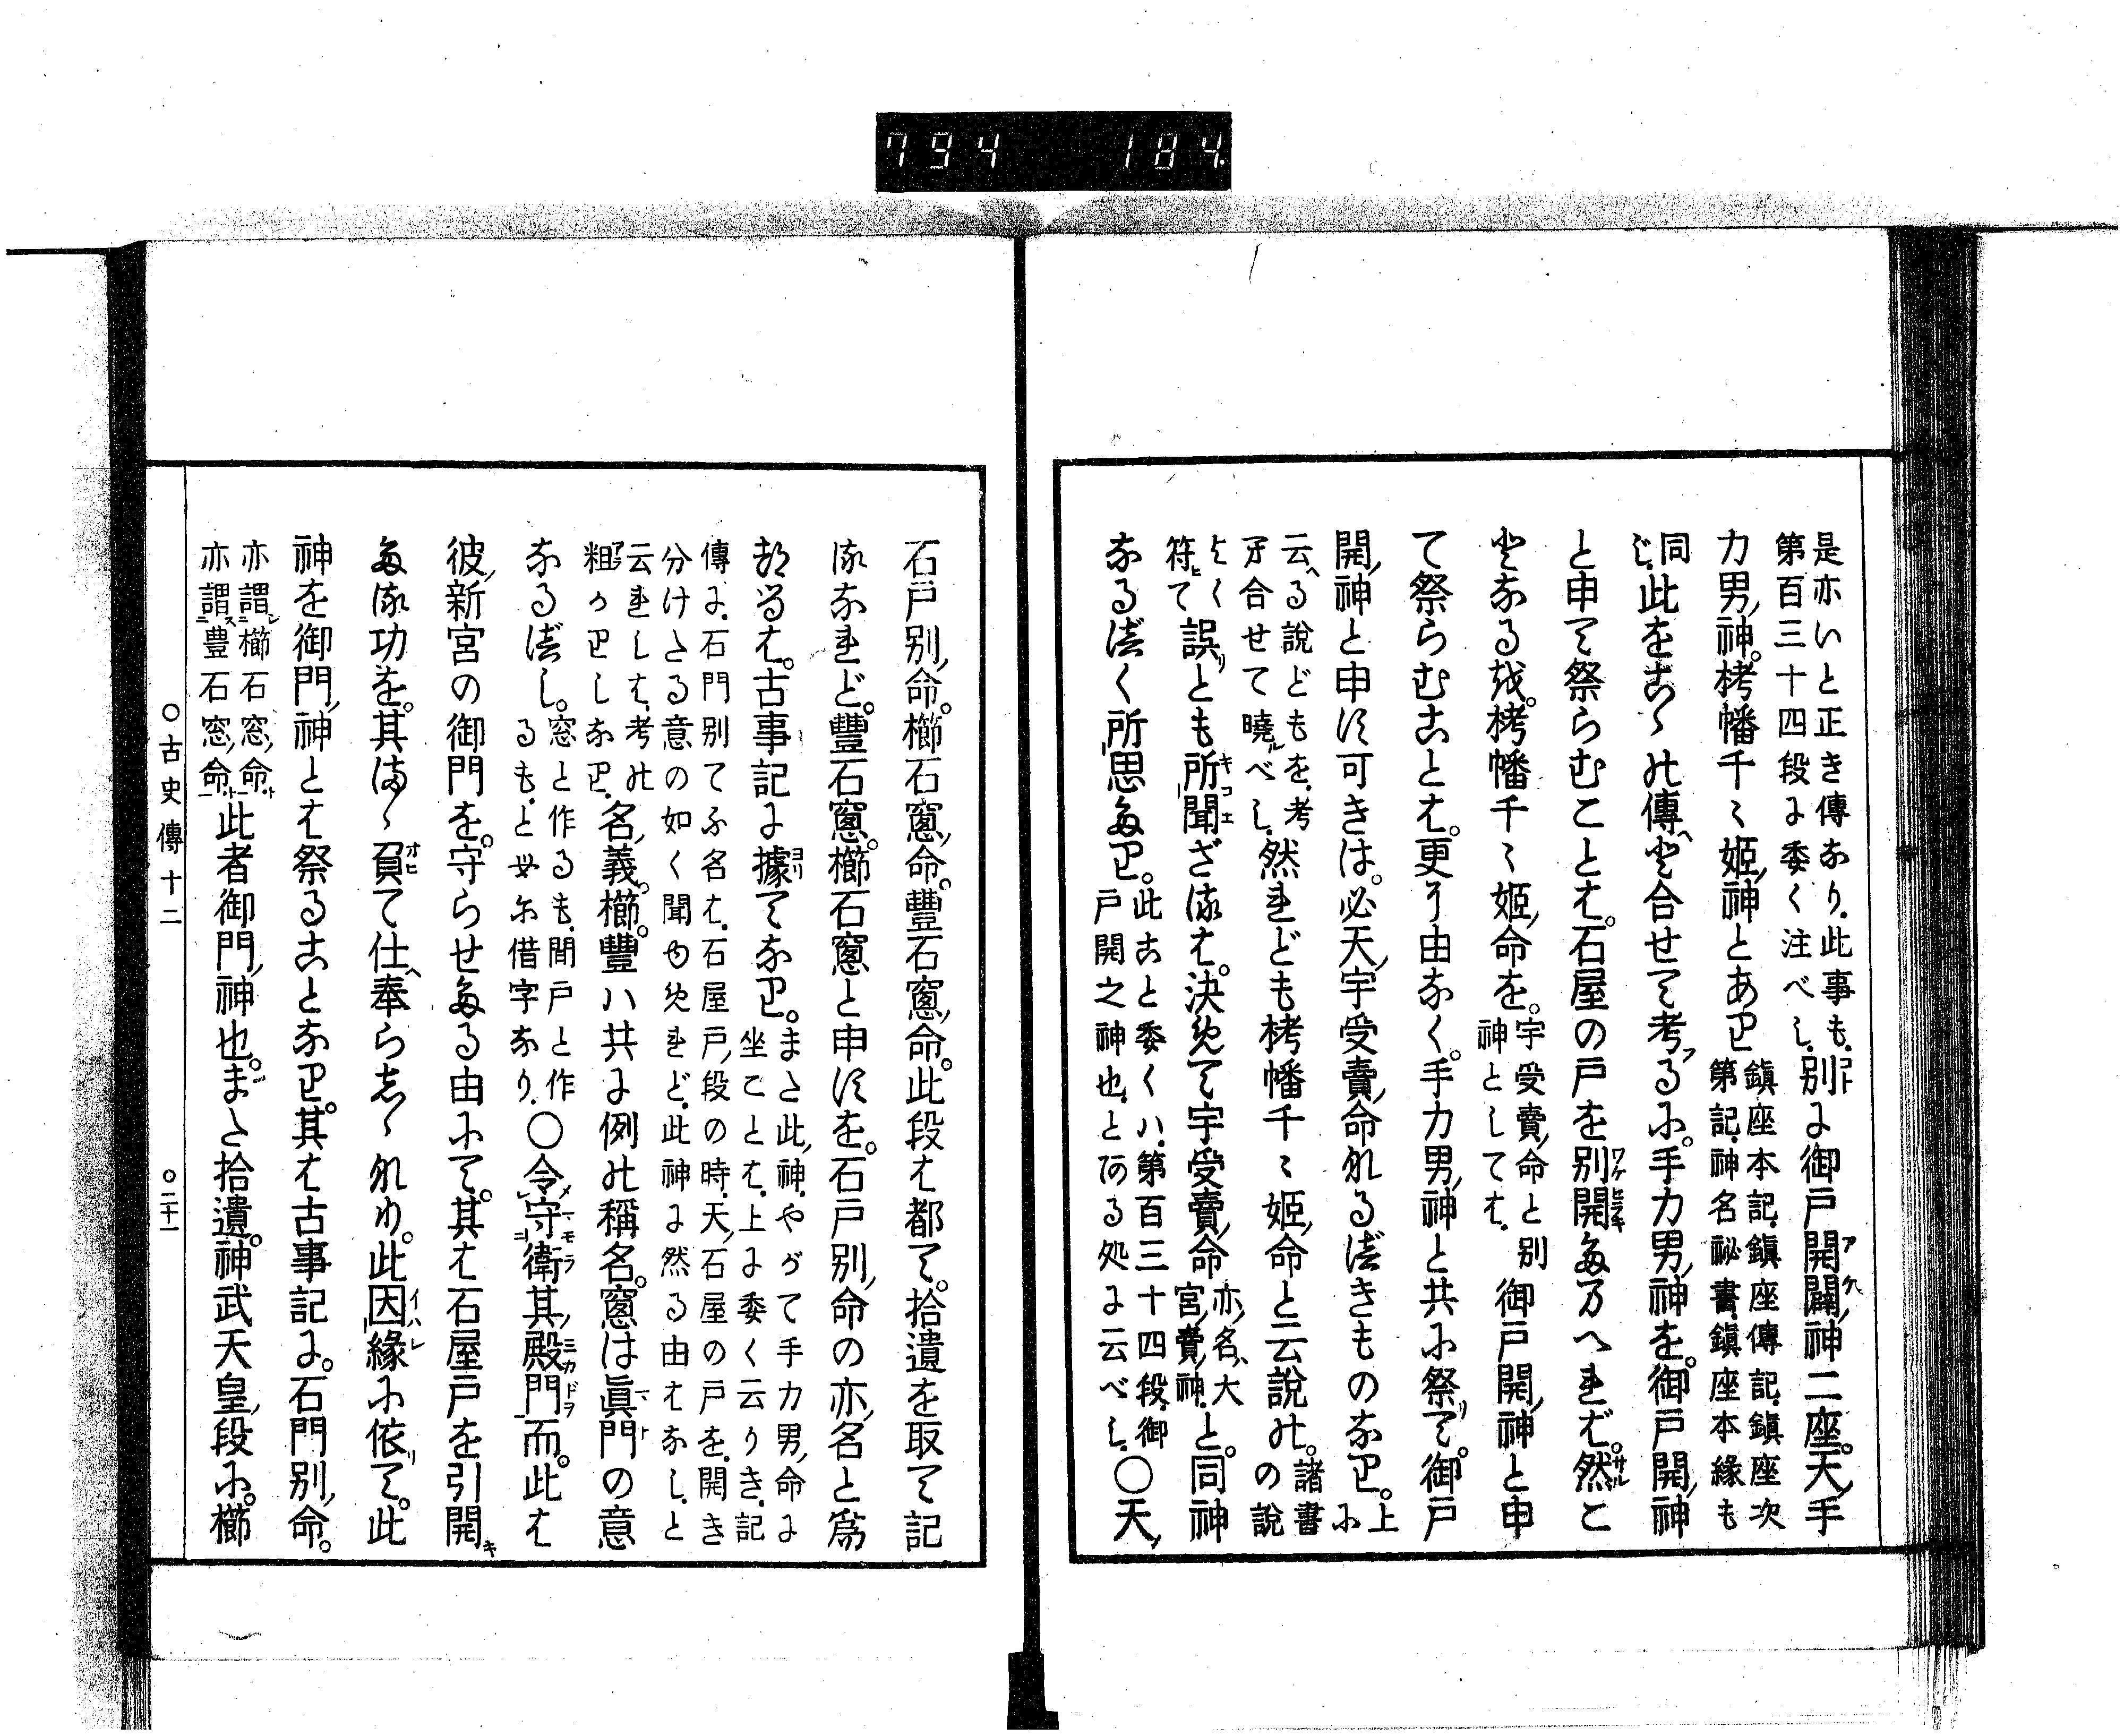 794 184
是亦いと正き傳なり。此事も、
第百三十四段に委く注べし。別に御戸開闢神二座。天手
力男神。栲幡千々姫神とあり
鎮座本記。鎮座傳記。鎮座次
第記。神名秘書。鎮座本緣も
同じ。此をこゝの傳と合せて考るに。手力男神を。御戸開神
と申て祭らむことは。石屋の戸を別開たまへれば。然こ
となるを。栲幡千々姫命を。
宇受賣命と別
神としては。
御戸開神と申
て祭らむことは。更に由なく。手力男神と共に祭て。御戸
開神と申す可きは。必天宇受賣命なるべきものなり。
上に
云る説どもを。考
へ合せて曉べし。
然れども栲幡千々姫命と云説の。
諸書の説
よく符て誤とも所聞ざるは。決めて宇受賣命
亦名、大
宮賣神。
と。同神
なるべく所思たり。
此こと委くハ。第百三十四段。御
戸開之神也。とある処に云べし。
〇天
石戸別命。櫛石窻命。豐石窻命。此段は都て。拾遺を取て記
るなれど。豐石窻。櫛石窻と申すを。石戸別命の亦名と爲
るは。古事記に據てなり。
また此神。やがて手力男命に
坐ことは。上に委く云りき。記
傳に。石門別てふ名は。石屋戸段の時。天石屋の戸を。開き
分けたる意の如く聞ゆめれど。此神に然る由はなし。と
云れしは。考の
粗かりしなり。
名義。櫛。豐ハ共に例の稱名。窻は眞門の意
なるべし。
窓と作るも。間戸と作
るも。ともに借字なり。
〇令守衛其殿門而。此は
彼新宮の御門を。守らせたる由にて。其は石屋戸を引開
たる功を。其まゝ負て仕奉らしゝなり。此因緣に依て。此
神を御門神とは祭ることなり。其は古事記に。石門別命。
亦謂櫛石窓命。
亦謂豊石窓命。
此者御門神也。また拾遺。神武天皇段に。櫛
〇古史傳十二 〇二十一